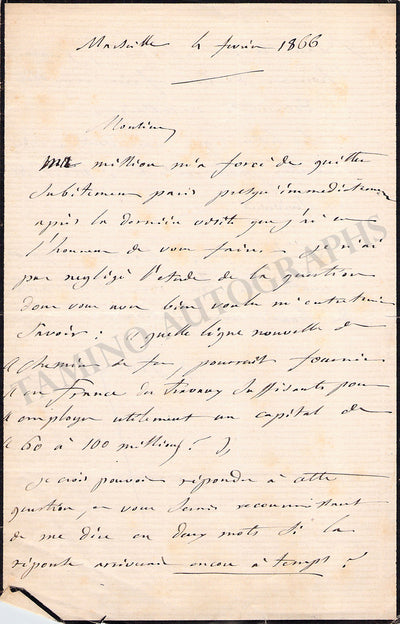 Marseille 4 fevrier 1866
Monsieur,
Ma mission m'a forcé de quitter
subitement paris presqu'immédiatement
après la dernière visite que j'ai eu
l'honneur de vous faire. je n'ai
pas negligé l'étude de la question
dont vous avez bien voulu m'entretenir
savoir : « quelle ligne nouvelle de
« chemin de fer, pourrait fournir
« en France des travaux suffisants pour
« employer utilement un capital de
« 60 à 100 millions ? »
je crois pouvoir répondre à cette
question, et vous serais reconnaissant
de me dire en deux mots si la
réponse arriverait encore à temps ?
TAMINO AUTOGRAPHS